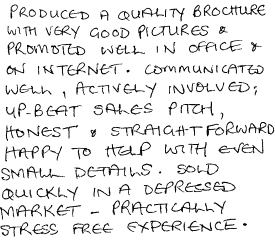 PRODUCED A QUALITY BROCHURE
WITH VERY GOOD PICTURES &
PROMOTED WELL IN OFFICE &
ON INTERNET. COMMUNICATED
WELL, ACTIVELY INVOLVED;
UP-BEAT SALES PITCH,
HONEST & STRAIGHTFORWARD
HAPPY TO HELP WITH EVEN
SMALL DETAILS. SOLD
QUICKLY IN A DEPRESSED
MARKET - PRACTICALLY
STRESS FREE EXPERIENCE.